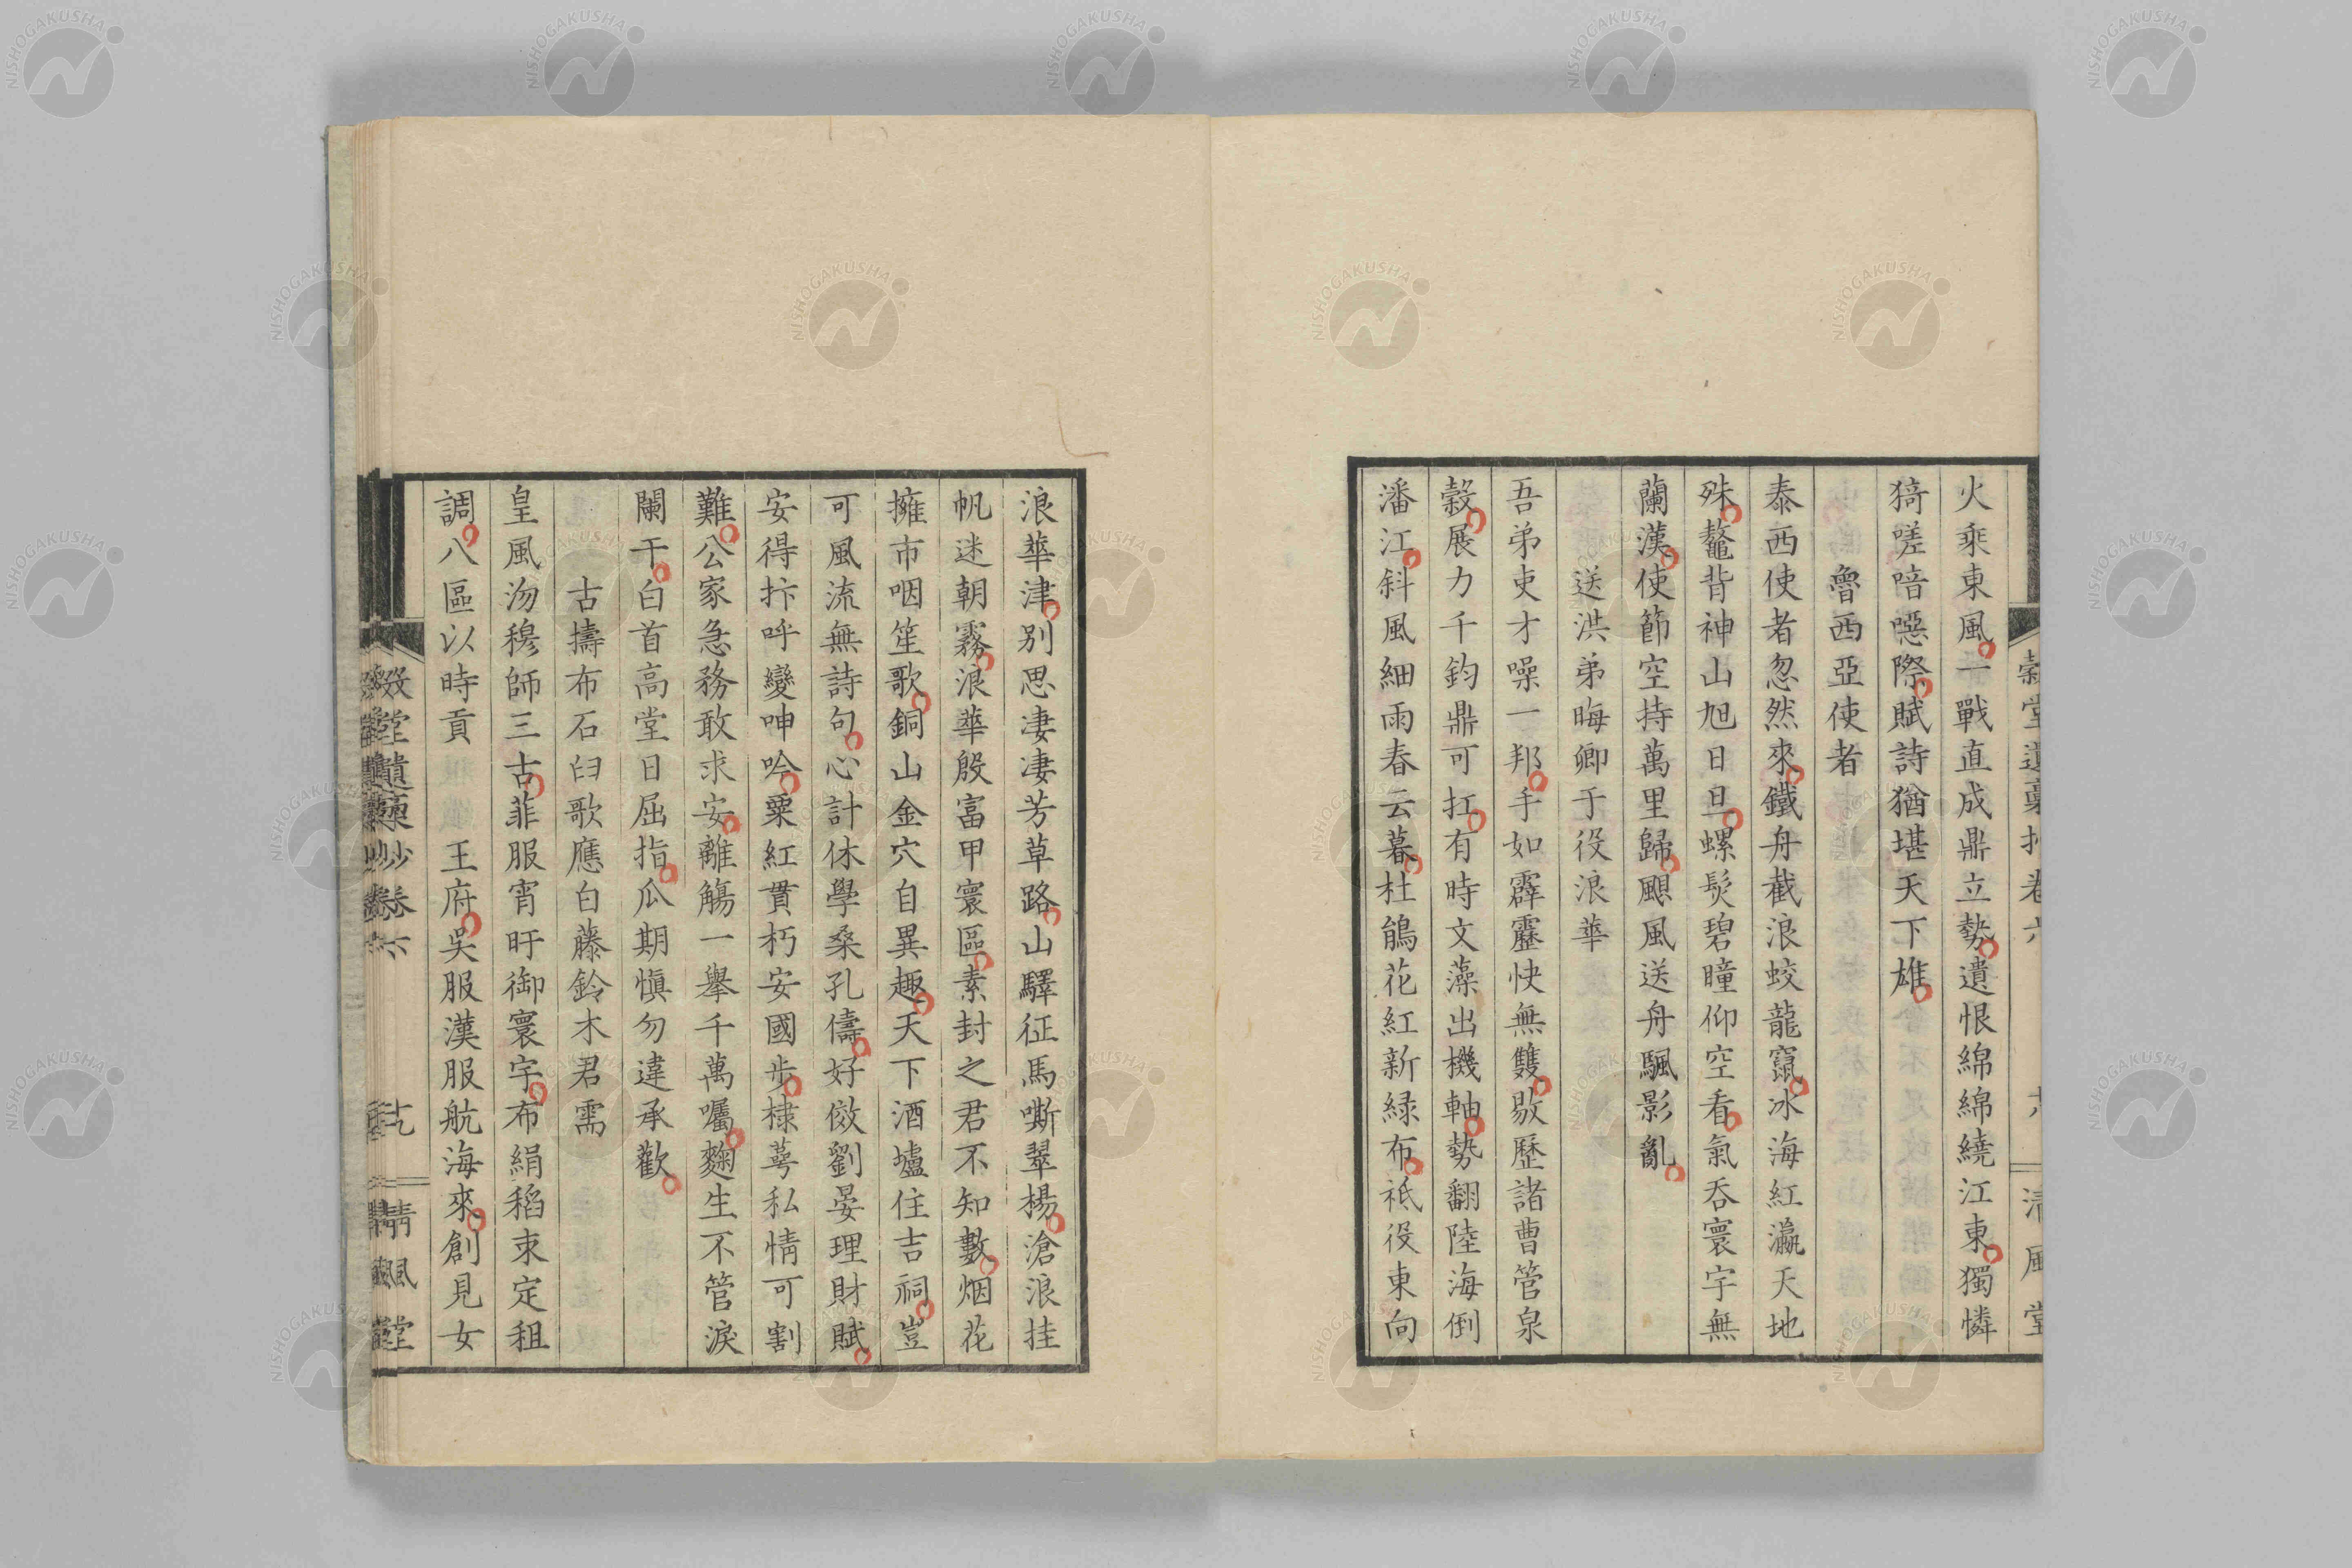 火乘東風一戰直成鼎立勢遺恨綿綿繞江東獨憐
猗嗟喑噁際賦詩猶堪天下雄
魯西亞使者
泰西使者忽然來鐵舟截浪蛟龍竄冰海紅瀛天地
殊鼇背神山旭日旦螺髮碧瞳仰空看氣吞寰宇無
蘭漢使節空持萬里歸颶風送舟颿影亂
送洪弟晦卿于役浪華
吾弟吏才噪一邦手如霹靂快無雙敭歷諸曹管泉
穀展力千鈞鼎可扛有時文藻出機軸勢翻陸海倒
潘江斜風細雨春云暮杜鵑花紅新緑布祗役東向
浪華津別思凄凄芳草路山驛征馬嘶翠楊滄浪挂
帆迷朝霧浪華殷富甲寰區素封之君不知數烟花
擁市咽笙歌銅山金穴自異趣天下酒壚住吉祠豈
可風流無詩句心計休學桑孔儔好倣劉晏理財賦
安得抃呼變呻吟粟紅貫朽安國步棣萼私情可割
難公家急務敢求安離觴一擧千萬囑麴生不管淚
闌干白首高堂日屈指瓜期愼勿違承歡
古擣布石臼歌應白藤鈴木君需
皇風沕穆師三古菲服宵旰御寰宇布絹稻束定租
調八區以時貢 王府吳服漢服航海來創見女
穀堂遺稾抄卷六
七
清風堂